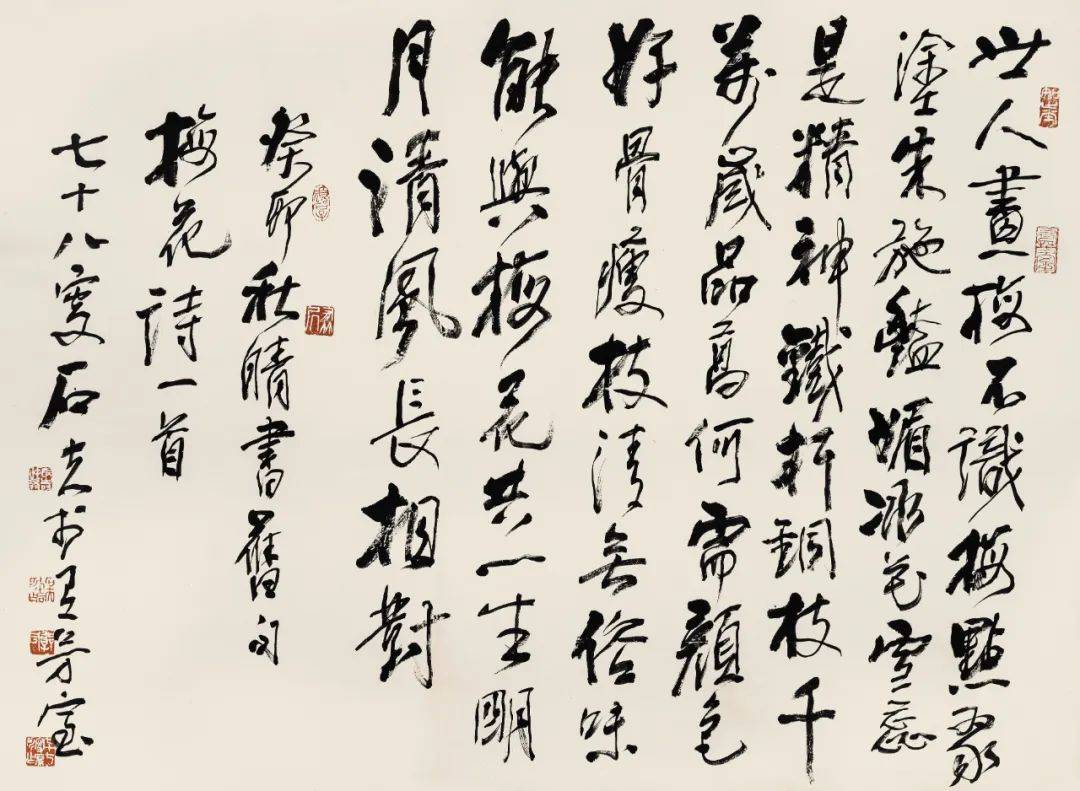 世人畫梅不識梅點
塗朱施豔媚冰花雪蕊
是精神鐵杆銅枝千
萬歲品高何需顏色
好骨瘦枝清無俗味
能與梅花共一生明
月清風長相對
癸卯秋晴書舊句
梅花詩一首
七十八叟石於芳室